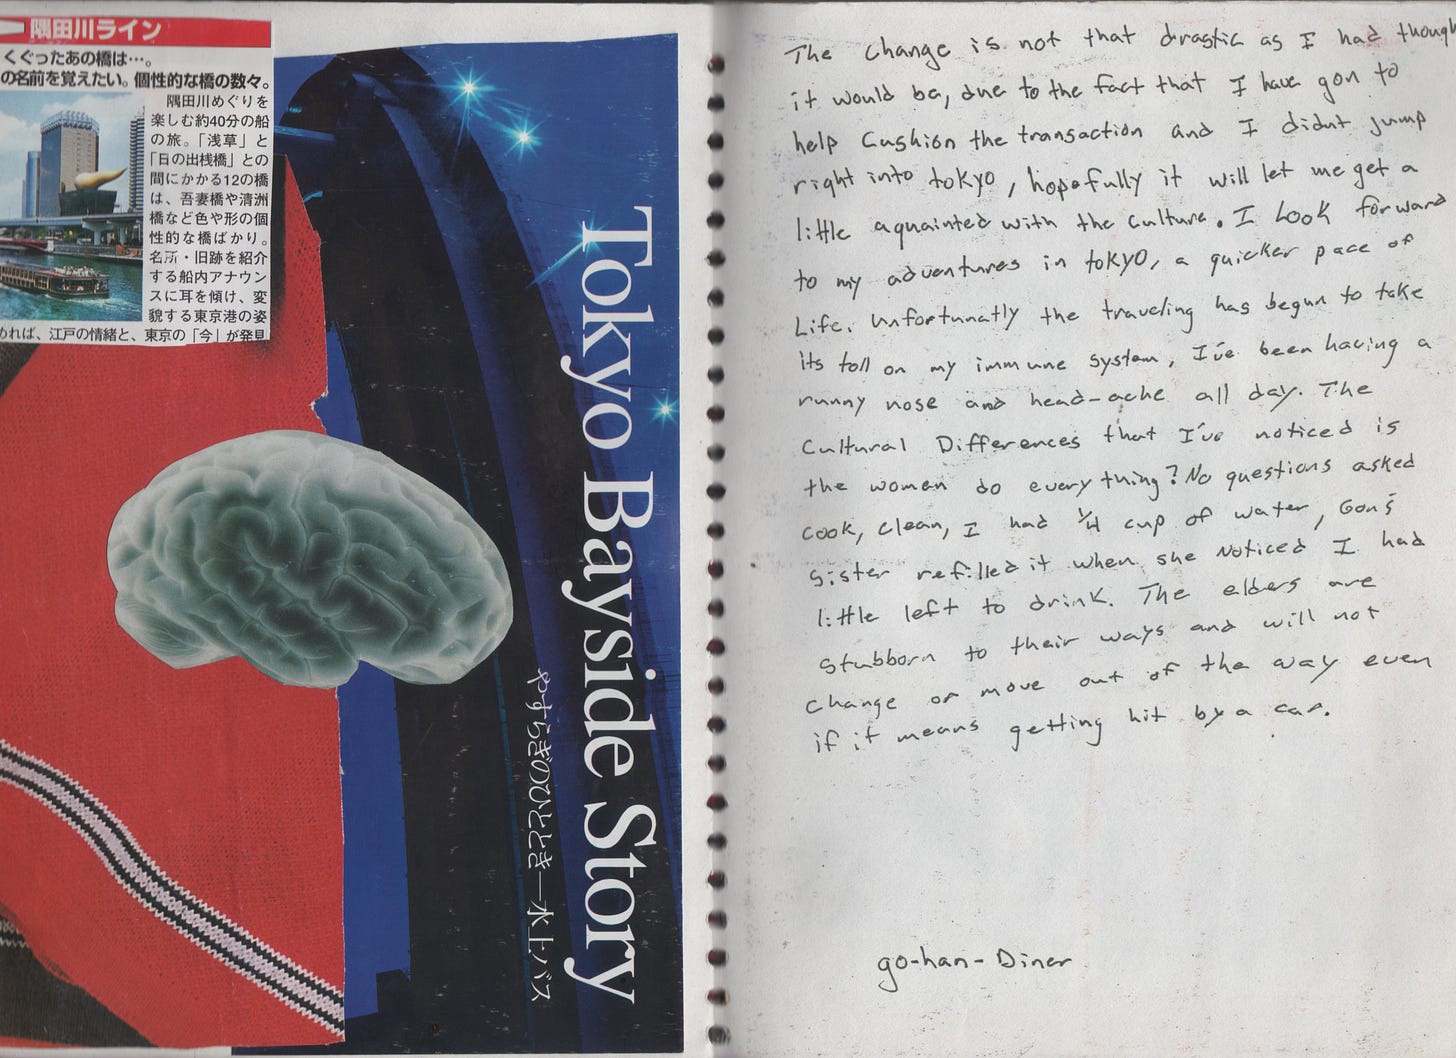 隅田川ライン
くぐったあの橋は…。
の名前を覚えたい。個性的な橋の数々。
隅田川めぐりを
楽しむ約40分の船
の旅。「浅草」と
「日の出桟橋」との
間にかかる12の橋
は、吾妻橋や清洲
橋など色や形の個
性的な橋ばかり。
名所・旧跡を紹介
する船内アナウン
スに耳を傾け、変
貌する東京港の姿
めれば、江戸の情緒と、東京の「今」が発見
Tokyo Bayside Story
やすらぎのひととき―水上バス
The change is not that drastic as I had though
it would be, due to the fact that I have gon to
help cushion the transaction and I didnt jump
right into tokyo, hopefully it will let me get a
little aquainted with the culture. I look forward
to my adventures in tokyo, a quicker pace of
Life. Unfortunatly the traveling has begun to take
its toll on my immune system, I've been having a
runny nose and head-ache all day. The
Cultural Differences that I've noticed is
the women do everything? No questions asked
cook, clean, I had 1/4 cup of water, Gon's
sister refilled it when she noticed I had
little left to drink. The elders are
stubborn to their ways and will not
change or move out of the way even
if it means getting hit by a car.
go-han-Diner